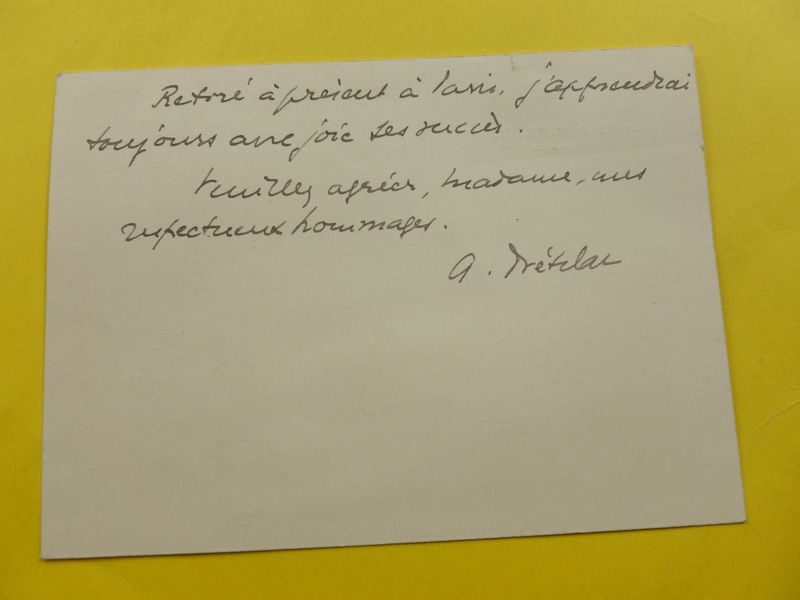 Retiré à présent à Paris, j'apprendrai
toujours avec joie ses succès.
Veuillez agréer, Madame, mes
respectueux hommages.
A.